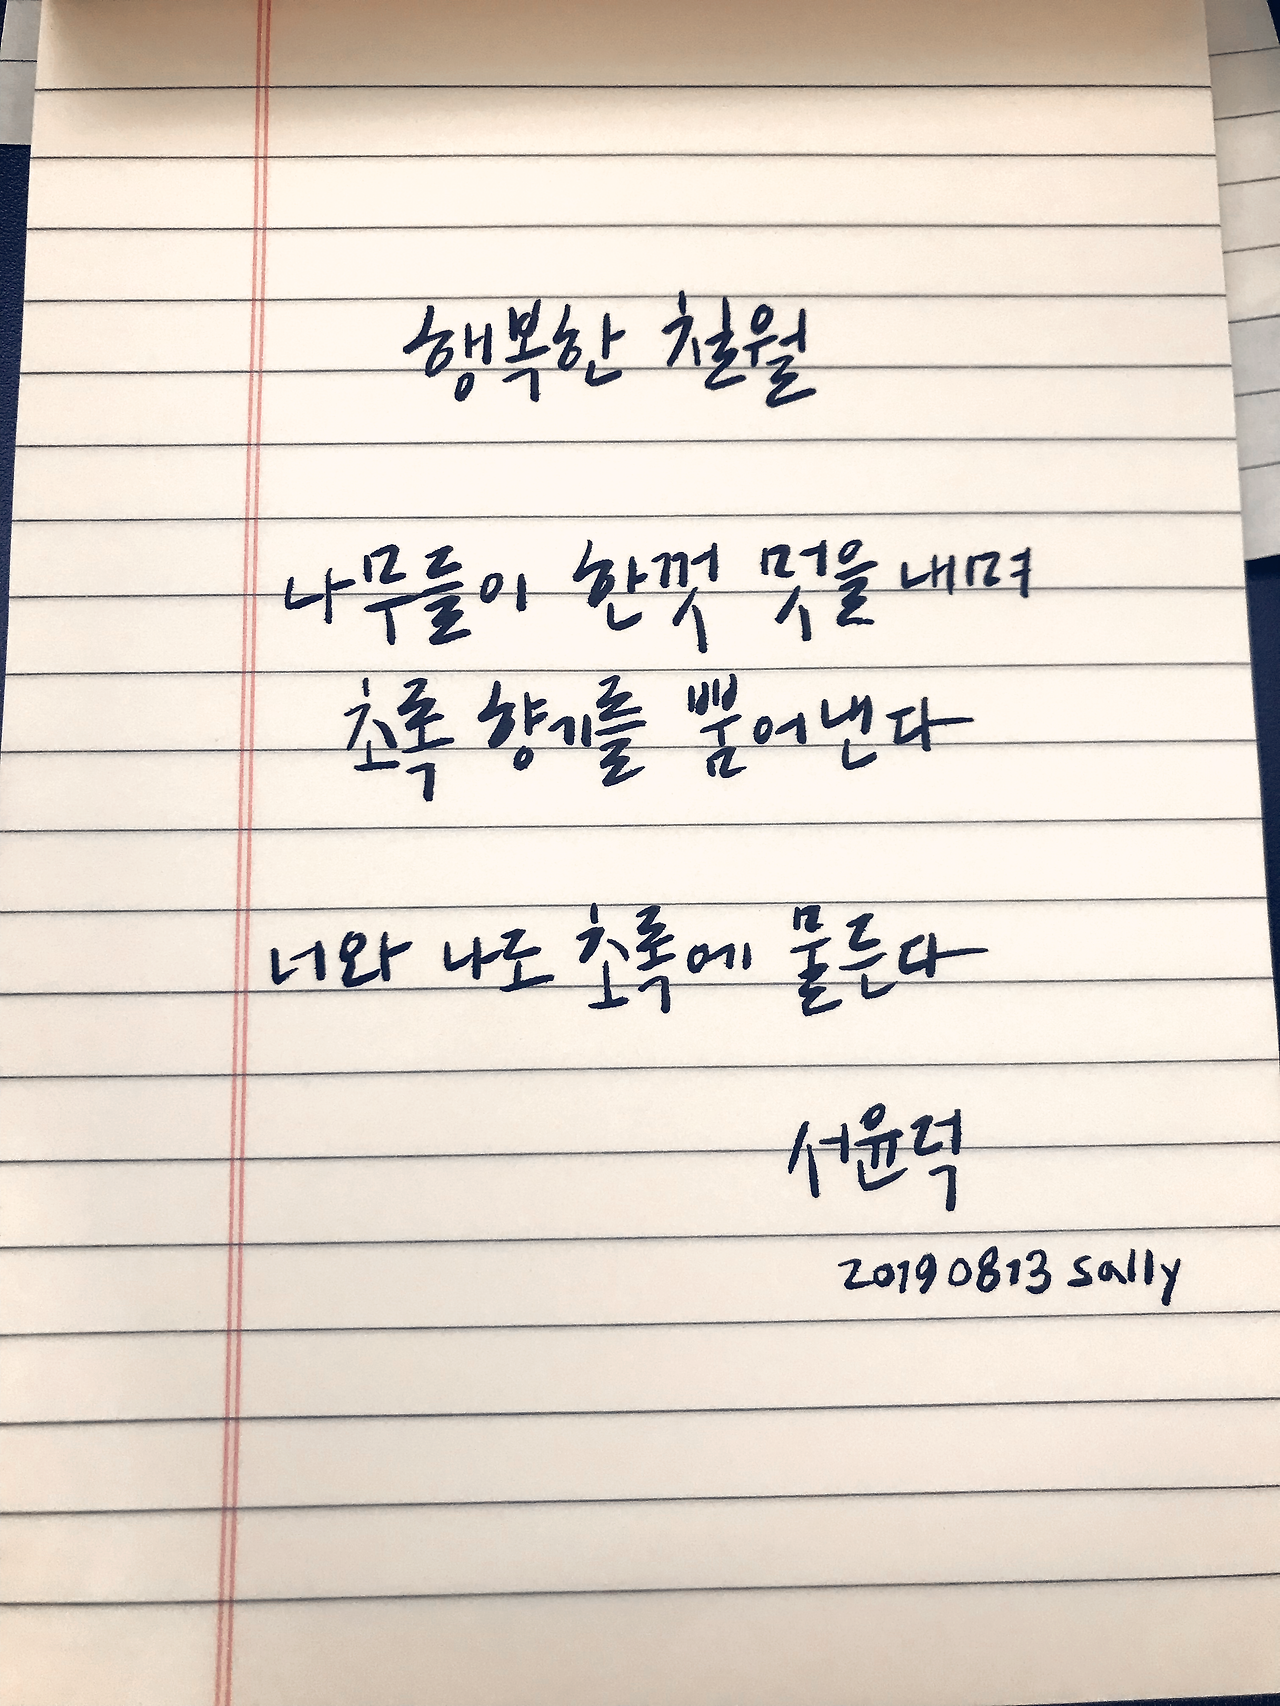 행복한 칠월
나무들이 한껏 멋을 내며
초록 향기를 뿜어낸다
너와 나도 초록에 물든다
서윤덕
20190813 sally